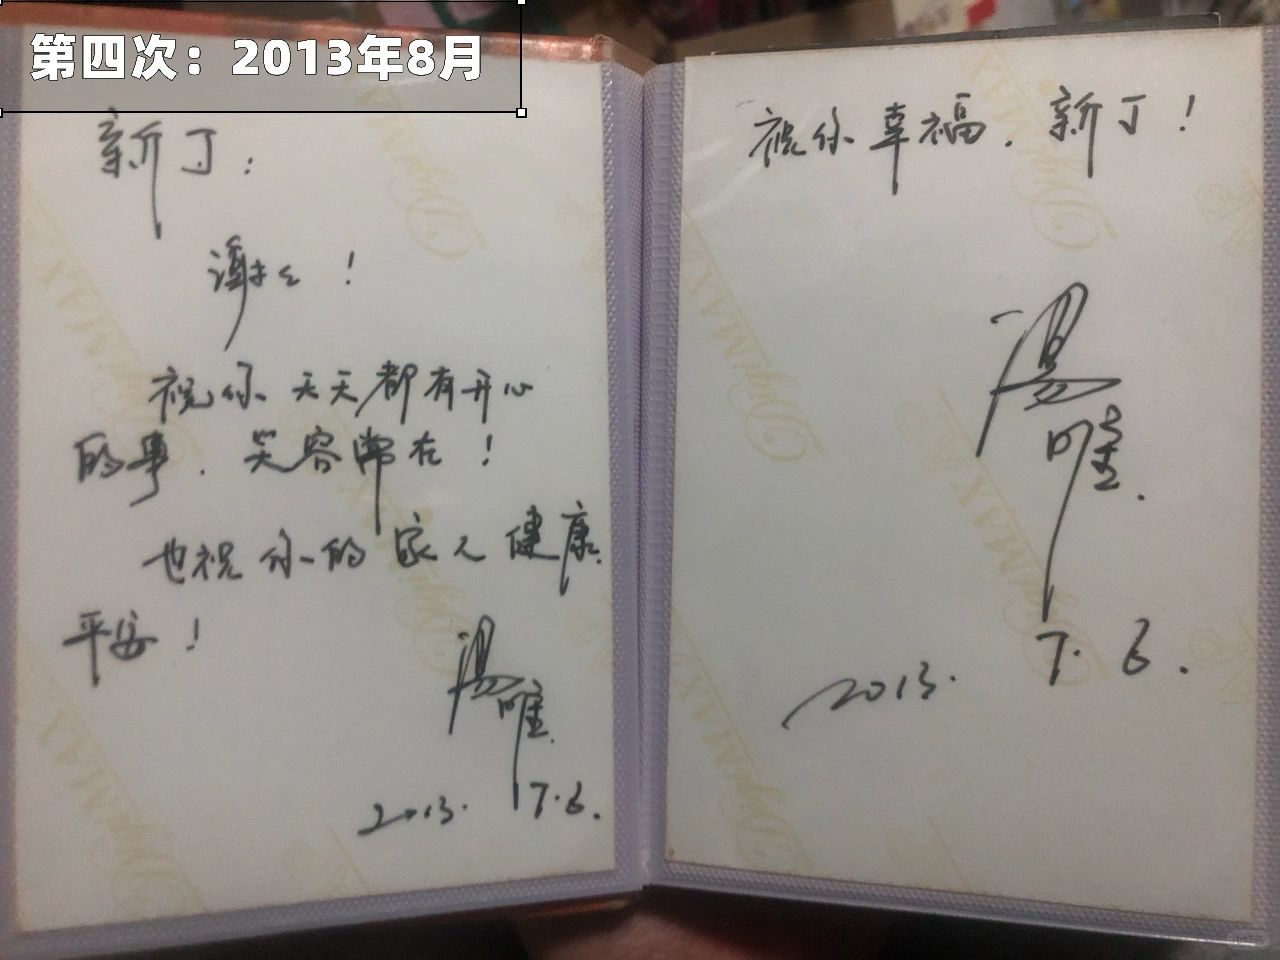 第四次：2013年8月
新丁：
谢谢！
祝你天天都有开心
的事．笑容常在！
也祝你的家人健康．
平安！
汤唯．
2013. 7.6.
祝你幸福．新丁！
汤
唯．
2013. 7.6.
DigiMAX